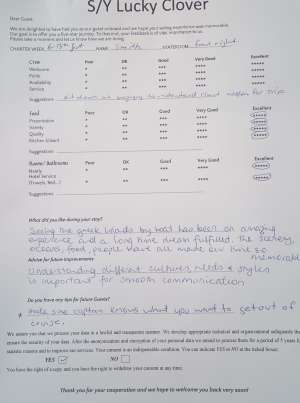 S/Y Lucky Clover
Dear Guest,
We are delighted to have had you as our guest onboard and we hope your sailing experience was memorable.
Our goal is to offer you a five-star journey. To that end, your feedback is of vital importance to us.
Please take a moment and let us know how we are doing.
CHARTER WEEK NAME Smith STATEROOM front right
Crew Poor OK Good Very Good Excellent
Welcome * ** *** **** *****
Polite * ** *** **** *****
Availability * ** *** **** *****
Service * ** *** **** *****
Suggestions
Food Poor OK Good Very Good Excellent
Presentation * ** *** **** *****
Variety * ** *** **** *****
Quality * ** *** **** *****
Kitchen onboard * ** *** **** *****
Suggestions
Rooms/ Bathrooms Poor OK Good Very Good Excellent
Neatly * ** *** **** *****
Hotel Service
(Towels, Bed...) * ** *** **** *****
Suggestions
What did you like during your stay?
Seeing the greek islands by boat has been an amazing
experience and a long time dream fulfilled. The scenery,
oceans, food, people have all made our time so
memorable
Advise for future improvements
Understanding different cultures, needs & styles
is important for smooth communication
Do you have any tips for future Guests?
* Make sure captain knows what you want to get out of
cruise.
We assure you that we process your data in a lawful and transparent manner. We develop appropriate technical and organizational safeguards the
ensure the security of your data. After the anonymization and encryption of your personal data we intend to process them for a period of 5 years f
statistic reasons and to improve our services. Your consent is an indispensable condition. You can indicate YES or NO at the below boxes:
YES NO
You have the right of access and you have the right to withdraw your consent at any time.
Thank you for your cooperation and we hope to welcome you back very soon!